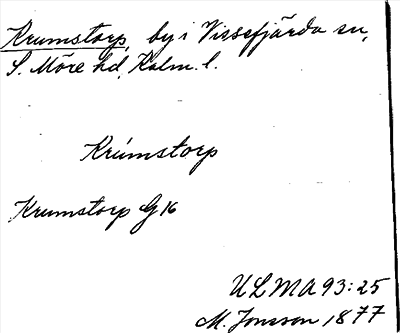 Krumstorp, by i Vissefjärda sn,
S. Möre hd, Kalm. l.
Krúmstorp
Krumstorp G 16
ULMA 93:25
M. Jonsson 1877